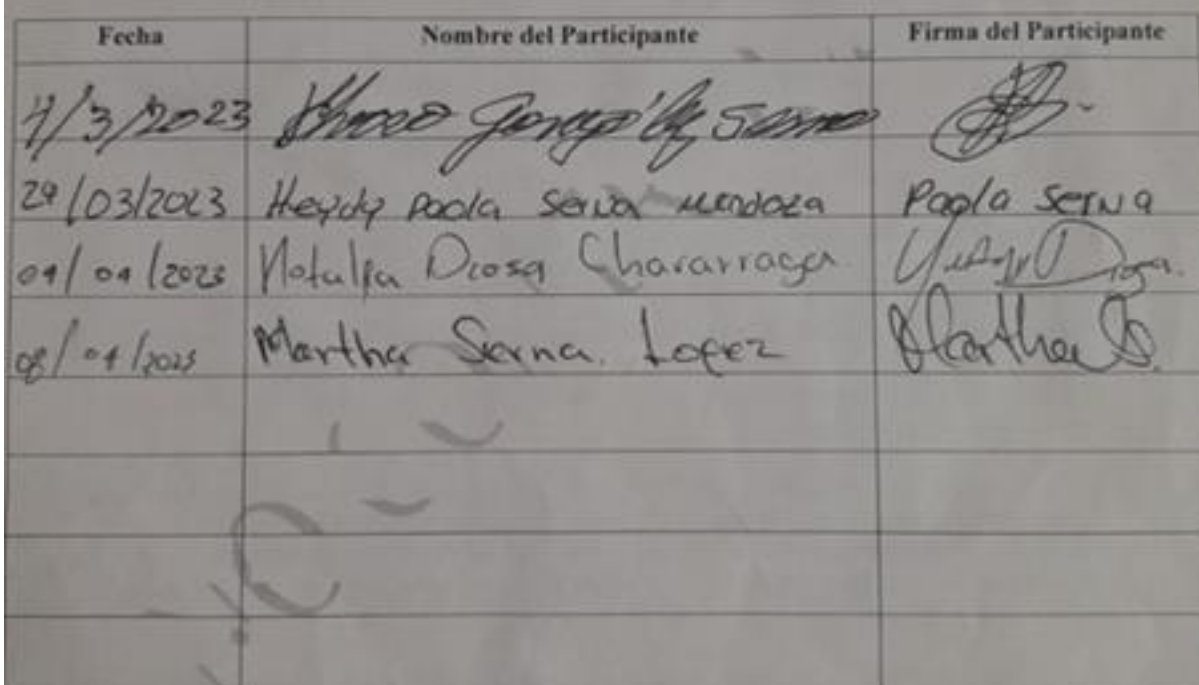 Fecha Nombre del Participante Firma del Participante
/3/2023 González Serna
29/03/2023 Heydy Paola Serna Mendoza Paola Serna
04/04/2023 Natalia Diosa Chavarraga
08/04/2023 Martha Serna. Lopez Martha S.